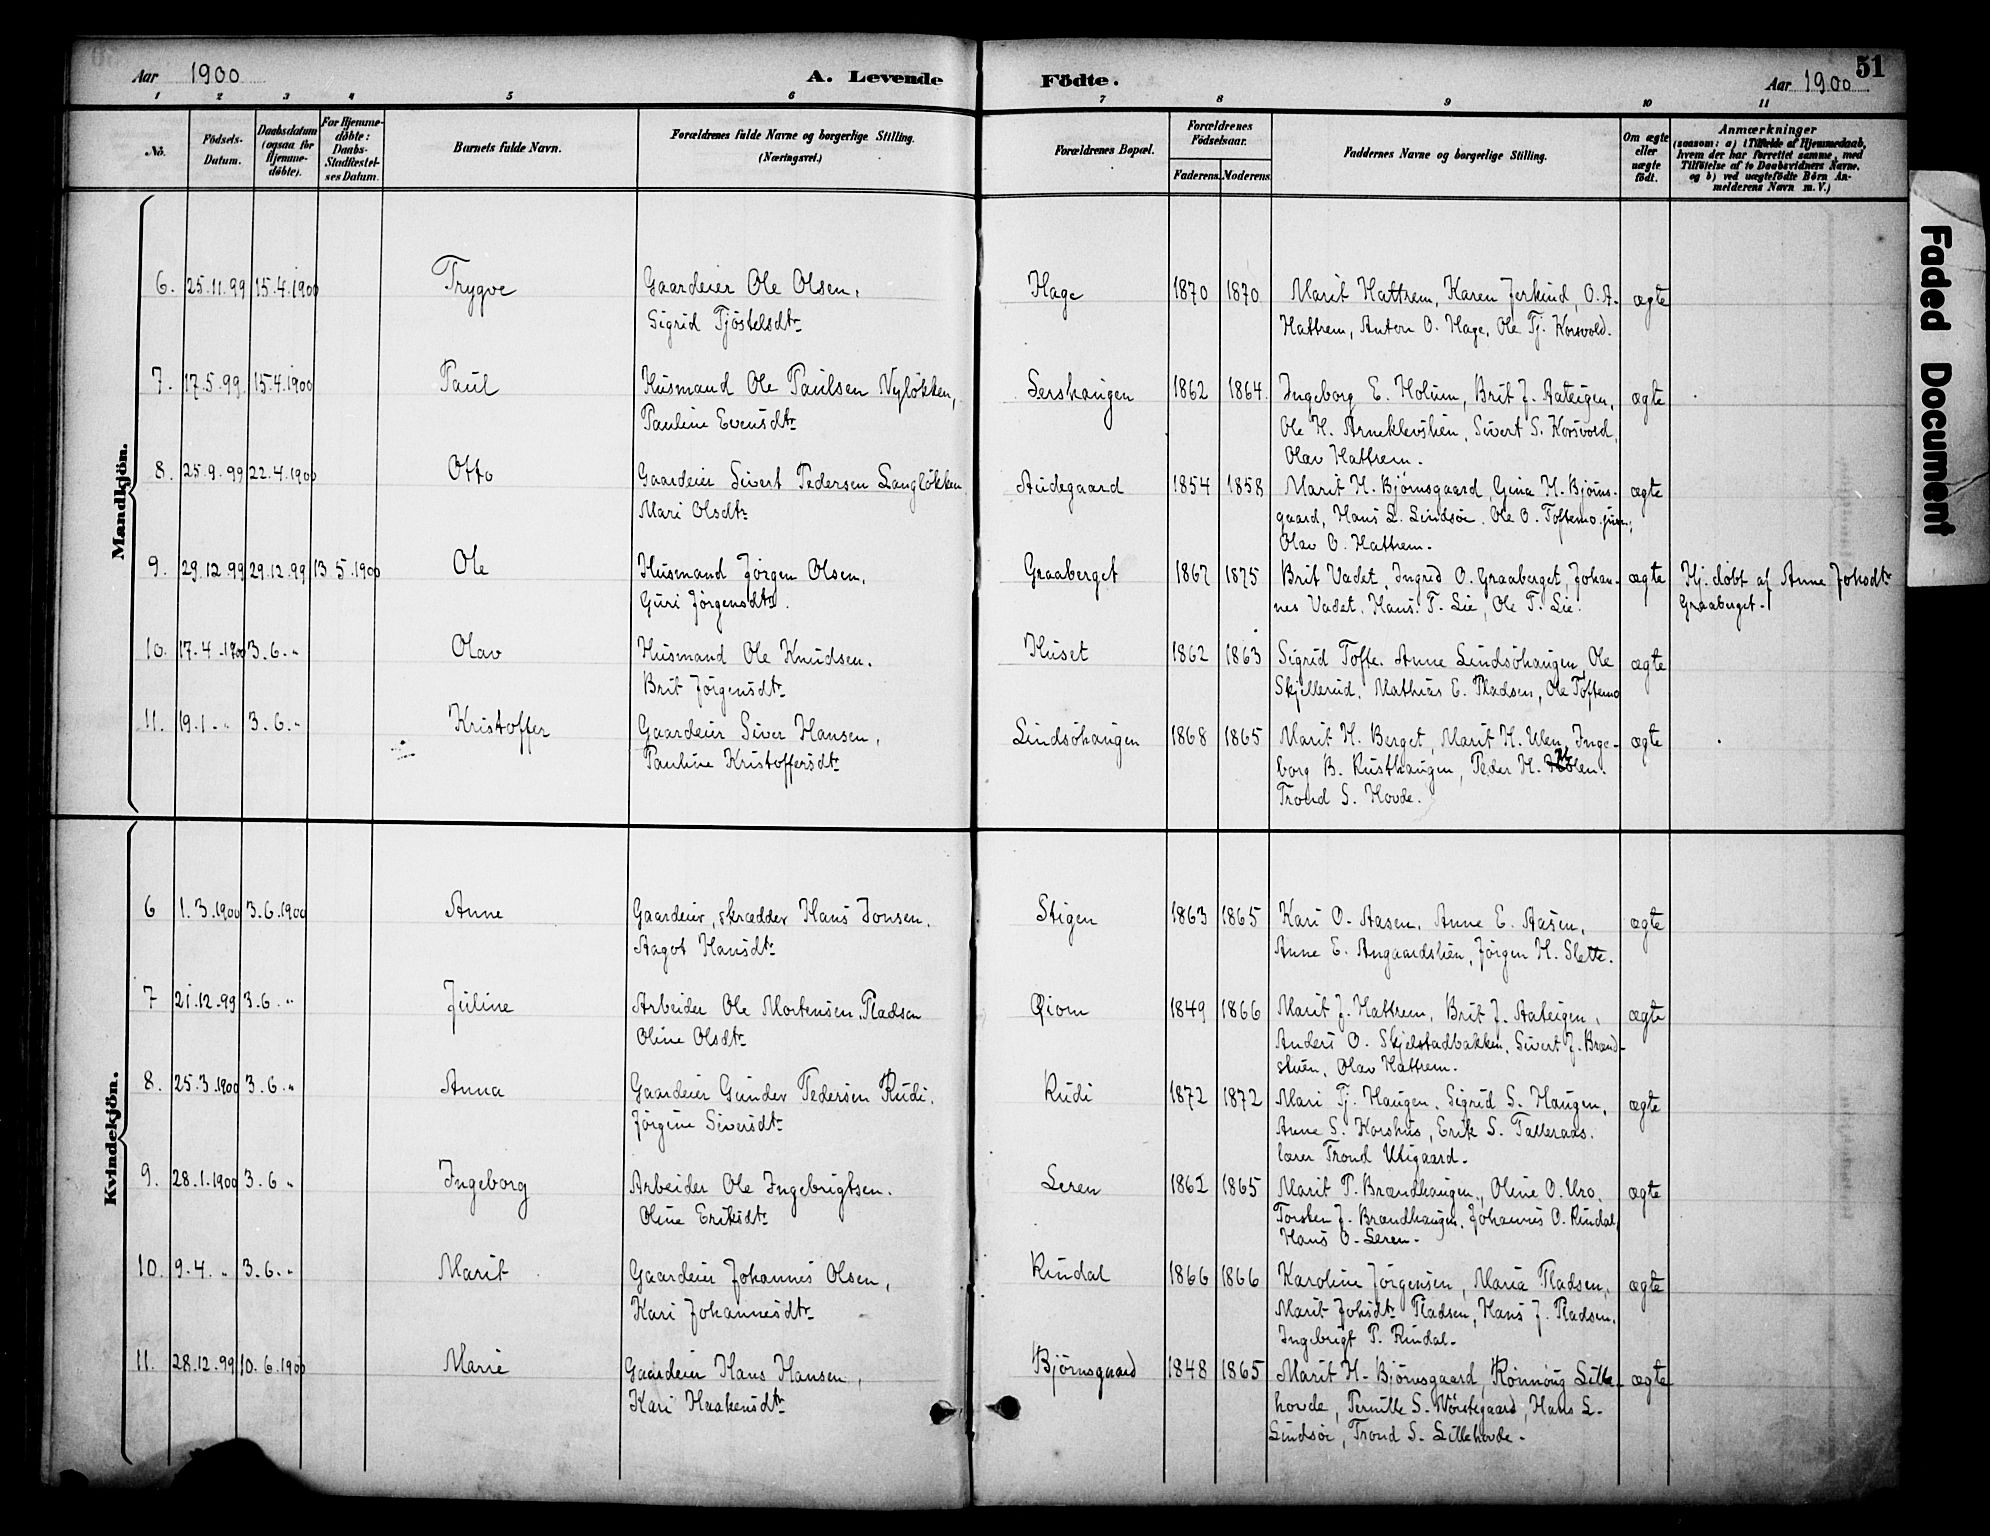 Aar 1900 A. Levende Födte. Aar 1900 51
1 2 3 4 5 6 7 8 9 10 11
No. Födsels-Datum. Daabsdatum (ogsaa for Hjemme-döbte). For Hjemme-döbte: Daabs-Stadfæstel-ses Datum. Barnets fulde Navn. Forældrenes fulde Navne og borgerlige Stilling. (Næringsvei.) Forældrenes Bopæl. Forældrenes Födselsaar. Faderens. Moderens. Faddernes Navne og borgerlige Stilling. Om ægte eller uægte födt. Anmærkninger (saasom: a) i Tilfælde af Hjemmedaab, hvem der har forrettet samme, med Tilföielse af to Daabsvidners Navne. og b) ved uægtefödte Börn An-melderens Navn m.V.)
Mandkjön.
6. 25.11.99 15.4.1900 Trygve Gaardeier Ole Olsen, Hage 1870 1870 Marit Hattrem, Karen Jerkind, O. A. ægte
Sigrid Tjöstelsdtr Hattrem, Anton O. Hage, Ole Tj. Korsvold.
7. 17.5.99. 15.4.1900 Paul Husmand Ole Paulsen Nyløkken, Sershaugen 1862 1864 Ingeborg E. Holum, Brit J. Aateigen, ægte
Pauline Evensdtr Ole H. Arneklevslien, Sivert S. Korsvold,
Olav Hattrem.
8. 25.9.99 22.4.1900 Otto Gaardeier Sivert Pedersen Langløkken Audegaard 1854 1858 Marit H. Bjørnsgaard, Gina H. Bjørns- ægte
Mari Olsdtr gaard, Hans L. Lindsøe. Ole O. Toftemo jun.,
Olav O. Hattrem.
9. 29.12.99 29.12.99 13.5.1900 Ole Husmand Jørgen Olsen, Graaberget 1867 1875 Brit Vadet, Ingred O. Graaberget, Johan- ægte Hj. døbt af Anne Johsdtr
Guri Jørgensdtr. nes Vadet, Hans T. Lie, Ole T. Lie. Graaberget.
10. 17.4.1900 3.6.„ Olav Husmand Ole Knudsen. Huset 1862 1863 Sigrid Tofte. Anne Lindsöhaugen, Ole ægte
Brit Jörgensdtr Skjellerud, Mathias E. Pladsen, Ole Toftemo
11. 19.1.„ 3.6.„ Kristoffer Gaardeier Siver Hansen, Lindsöhaugen 1868 1865 Marit H. Berget, Marit H. Ulen, Inge- ægte
Pauline Kristoffersdtr borg B. Rusthaugen, Peder H.
Trond S. Hovde.
Kvindekjön.
6 1.3.1900 3.6.1900 Anne Gaardeier, skrædder Hans Jonsen. Stigen 1863 1865 Kari O. Aasen, Anne E. Aasen, ægte
Aagot Hansdtr Anne E. Angaardslien, Jørgen H. Slette.
7 21.12.99 3.6.„ Juline Arbeider Ole Mortensen Pladsen Qiom 1849 1866 Marit J. Hattrem, Brit J. Aateigen, ægte
Oline Olsdtr Anders O. Skjelstadbakken, Sivert J. Brænd-
stuen, Olav Hattrem.
8. 25.3.1900 3.6.„ Anna Gaardeier Gunder Pedersen Rudi. Rudi 1872 1872 Mari Tj. Haugen. Sigrid S. Haugen, ægte
Jørgine Siversdtr Anne S. Korshus, Erik S. Talleraas.
lærer Trond Uligaard.
9. 28.1.1900 3.6.„ Ingeborg Arbeider Ole Ingebrigtsen. Leren 1862 1865 Marit P. Brændhaugen, Oline O. Uro, ægte
Oline Eriksdtr Torsten J. Brændhaugen, Johannes O. Rindal,
Hans O. Leren.
10. 9.4.„ 3.6.„ Marit Gaardeier Johannes Olsen, Rindal 1866 1866 Karoline Jørgensen, Maria Pladsen, ægte
Kari Johannesdtr Marit Johsdtr Pladsen, Hans J. Pladsen,
Ingebrigt P. Rindal.
11. 28.12.99 10.6.1900 Marie Gaardeier Hans Hansen, Bjørnsgaard 1848 1865 Marit H. Bjørnsgaard, Rönnoug Lille- ægte
Kari Haakensdtr hovde, Pernille S. Nörstegaard, Hans L.
Lindsøe, Trond S. Lillehovde.
Faded Document